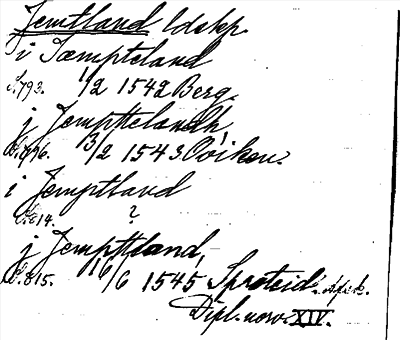 Jemtland ldskp.
i Jæmpteland
S. 793. 1/2 1542 Berg.
j Jempttelandh,
S. 796. 3/2 1543. Oviken.
i Jemptland
S. 814. ?
j Jempttland,
S. 815. 16/6 1545
Dipl. norv. XIV.